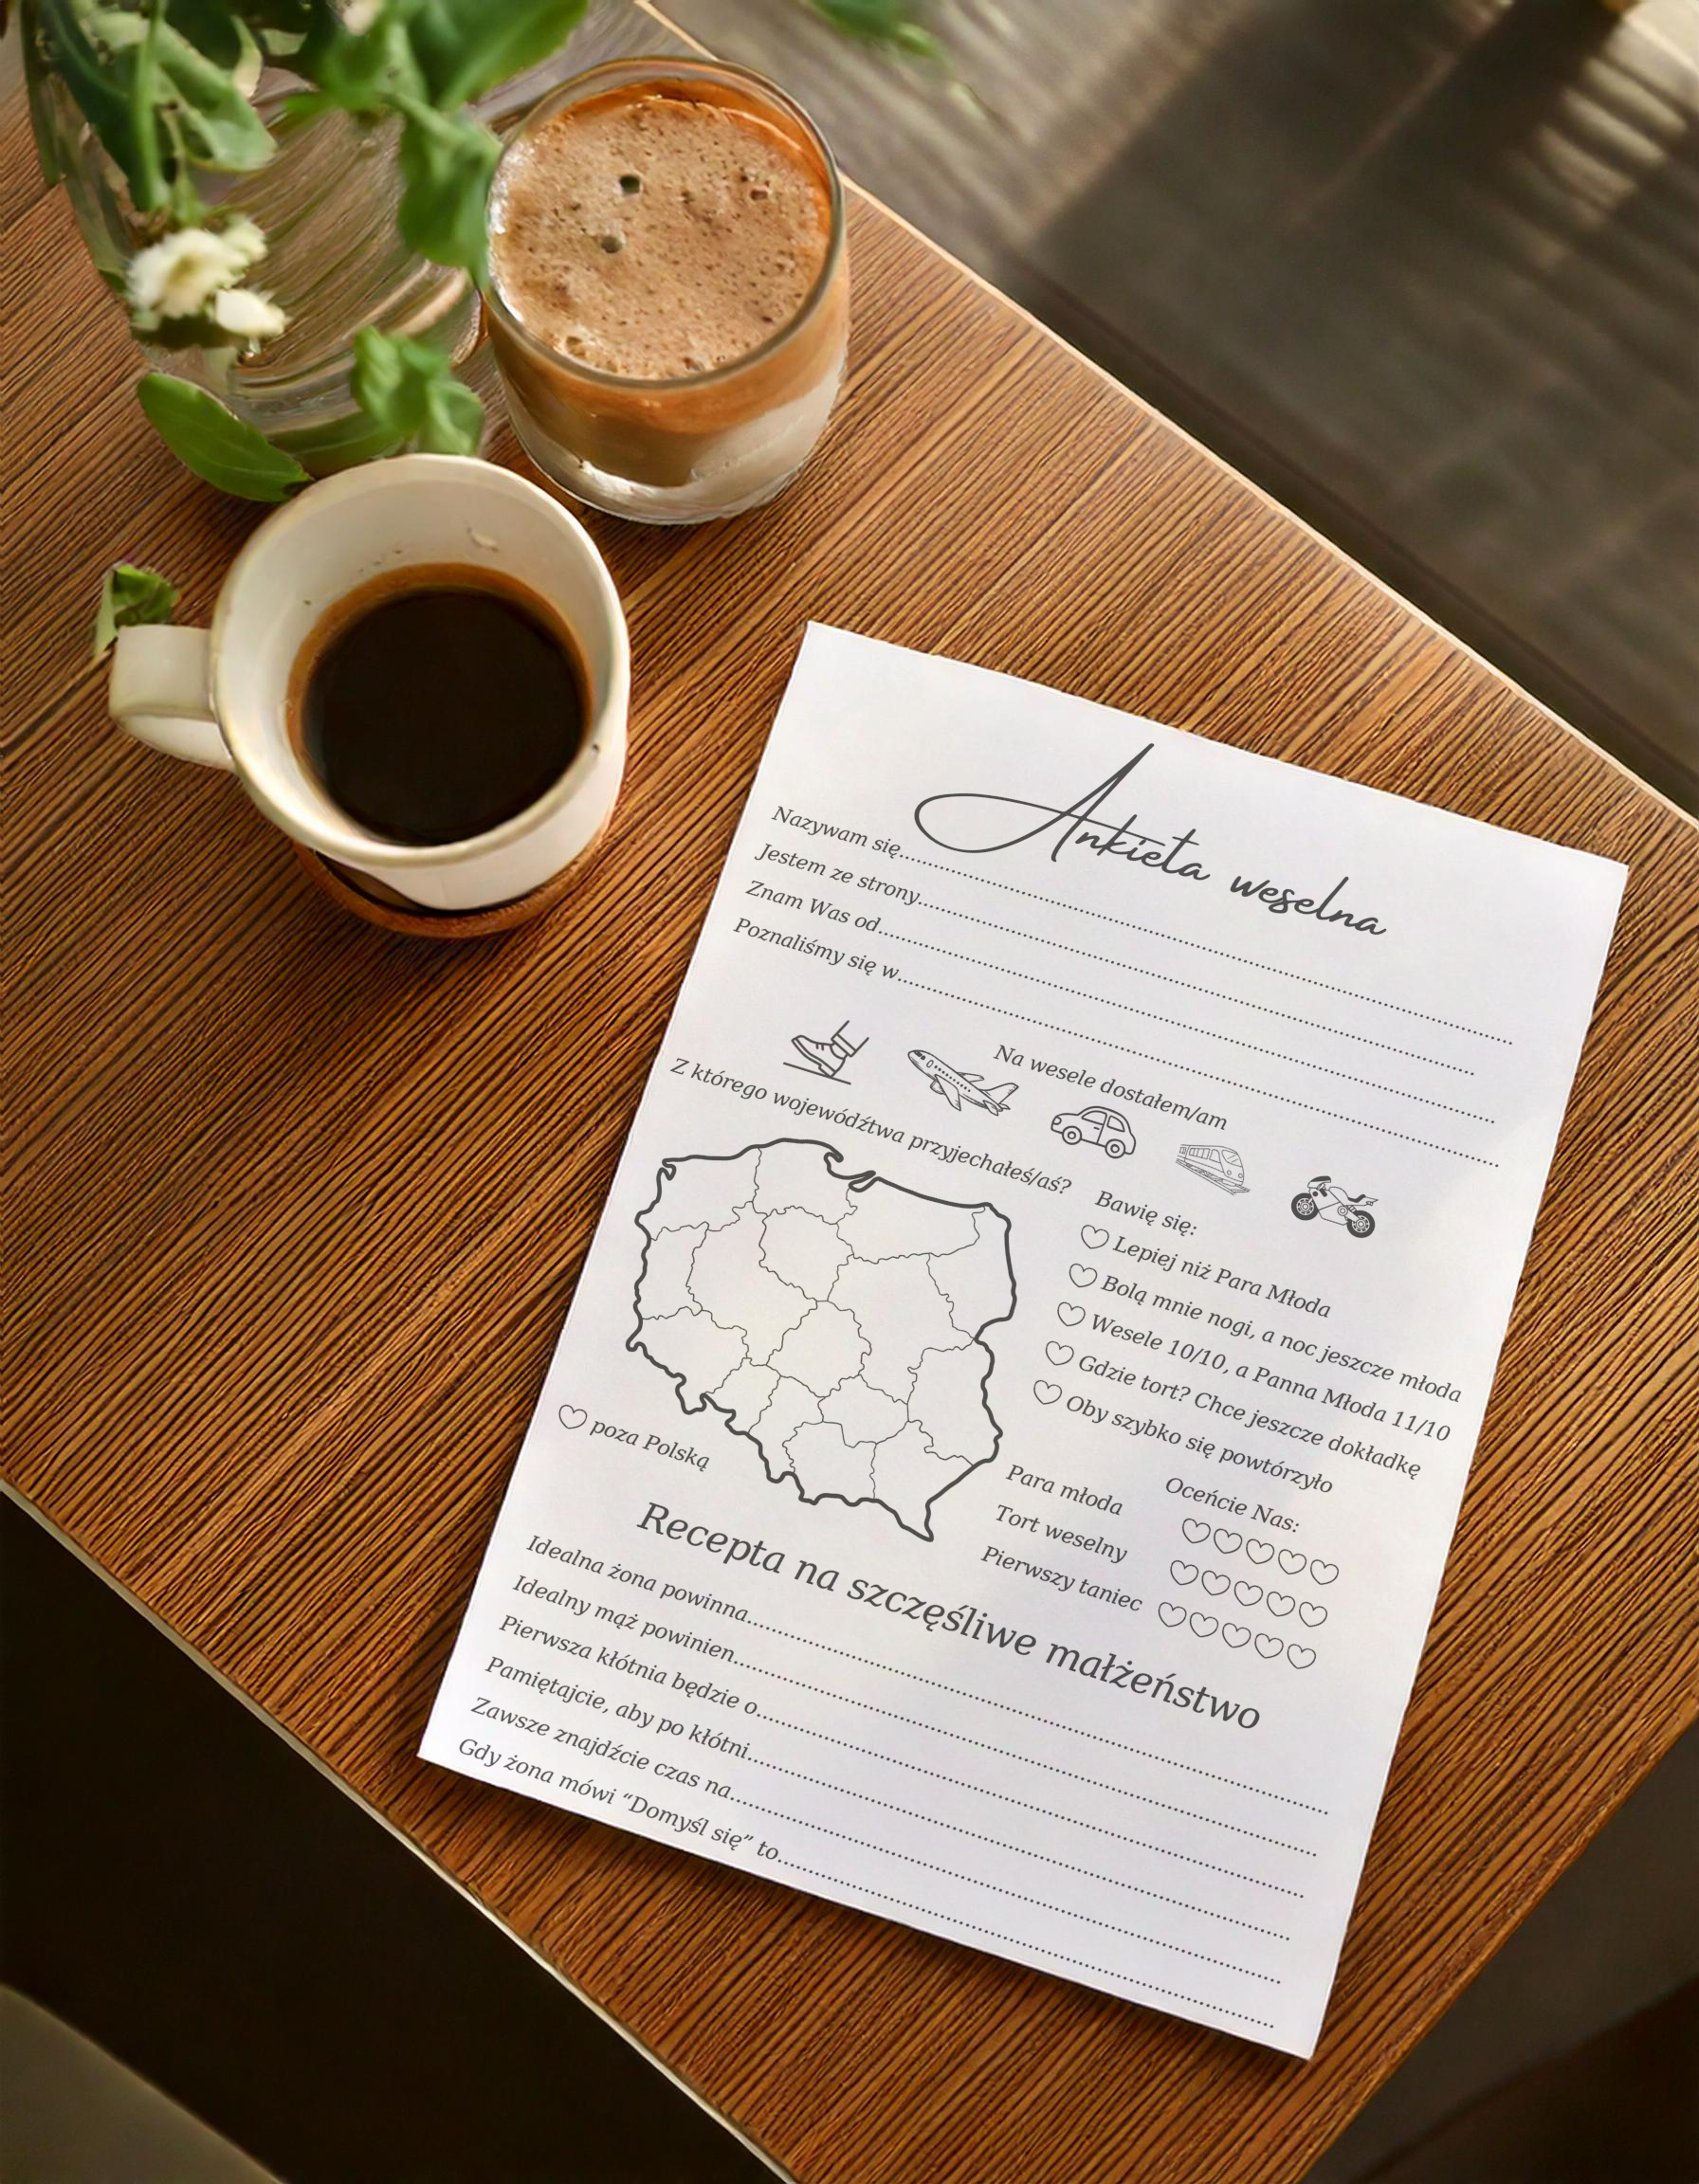 Ankieta weselna
Nazywam się
Jestem ze strony
Znam Was od
Poznaliśmy się w
Na wesele dostałem/am
Z którego wojewódźtwa przyjechałeś/aś?
poza Polską
Bawię się:
Lepiej niż Para Młoda
Bolą mnie nogi, a noc jeszcze młoda
Wesele 10/10, a Panna Młoda 11/10
Gdzie tort? Chce jeszcze dokładkę
Oby szybko się powtórzyło
Oceńcie Nas:
Para młoda
Tort weselny
Pierwszy taniec
Recepta na szczęśliwe małżeństwo
Idealna żona powinna
Idealny mąż powinien
Pierwsza kłótnia będzie o
Pamiętajcie, aby po kłótni
Zawsze znajdźcie czas na
Gdy żona mówi “Domyśl się” to